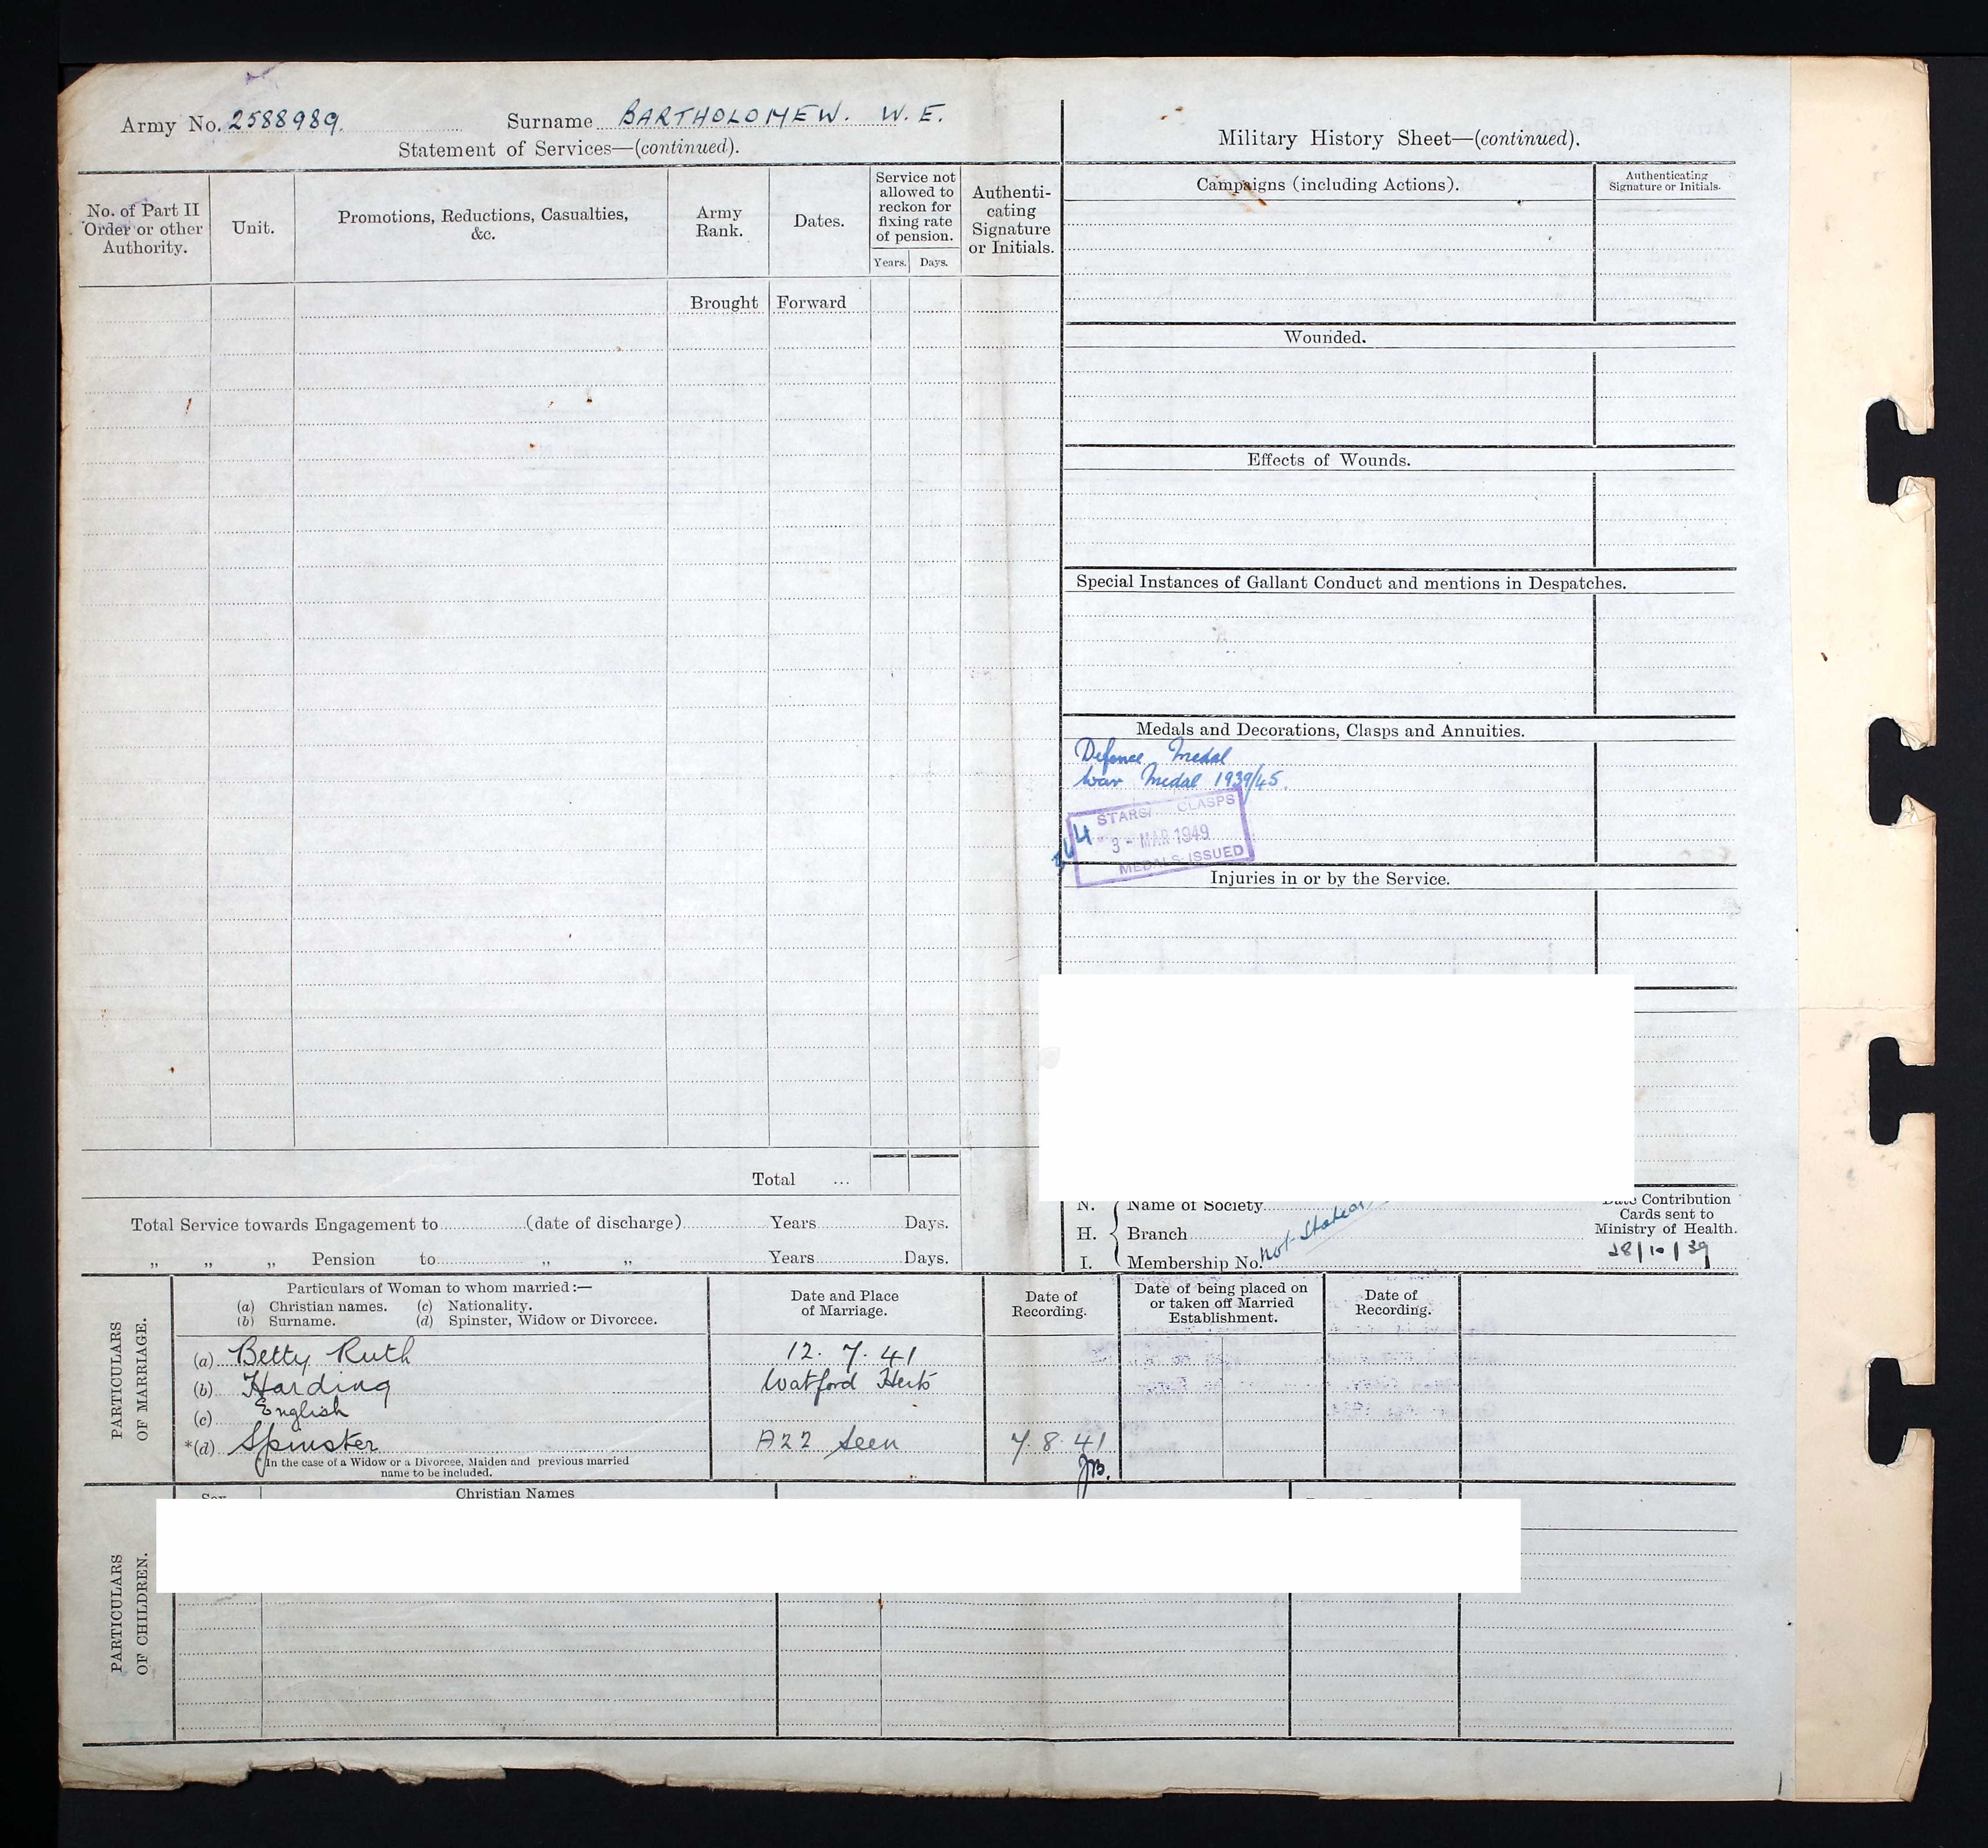 Army No. 2588989. Surname BARTHOLOMEW. W. E.
Statement of Services—(continued).
No. of Part II Order or other Authority.
Unit.
Promotions, Reductions, Casualties, &c.
Army Rank.
Dates.
Service not allowed to reckon for fixing rate of pension.
Years. Days.
Authenti- cating Signature or Initials.
Brought Forward
Total ...
Total Service towards Engagement to (date of discharge) Years Days.
„ „ „ Pension to „ „ Years Days.
Military History Sheet—(continued).
Campaigns (including Actions).
Authenticating Signature or Initials.
Wounded.
Effects of Wounds.
Special Instances of Gallant Conduct and mentions in Despatches.
Medals and Decorations, Clasps and Annuities.
Defence Medal
War Medal 1939/45.
STARS/ CLASPS
3 - MAR 1949
MEDALS ISSUED
Injuries in or by the Service.
N. Name of Society
H. Branch
I. Membership No.
not stated
Date Contribution
Cards sent to
Ministry of Health.
28/10/39
PARTICULARS OF MARRIAGE.
Particulars of Woman to whom married:—
(a) Christian names. (c) Nationality.
(b) Surname. (d) Spinster, Widow or Divorcee.
Date and Place of Marriage.
Date of Recording.
Date of being placed on or taken off Married Establishment.
Date of Recording.
(a) Betty Ruth 12. 7. 41
(b) Harding Watford Herts
(c) English
*(d) Spinster A22 seen 7. 8. 41
JB.
* In the case of a Widow or a Divorcee, Maiden and previous married
name to be included.
PARTICULARS OF CHILDREN.
Christian Names